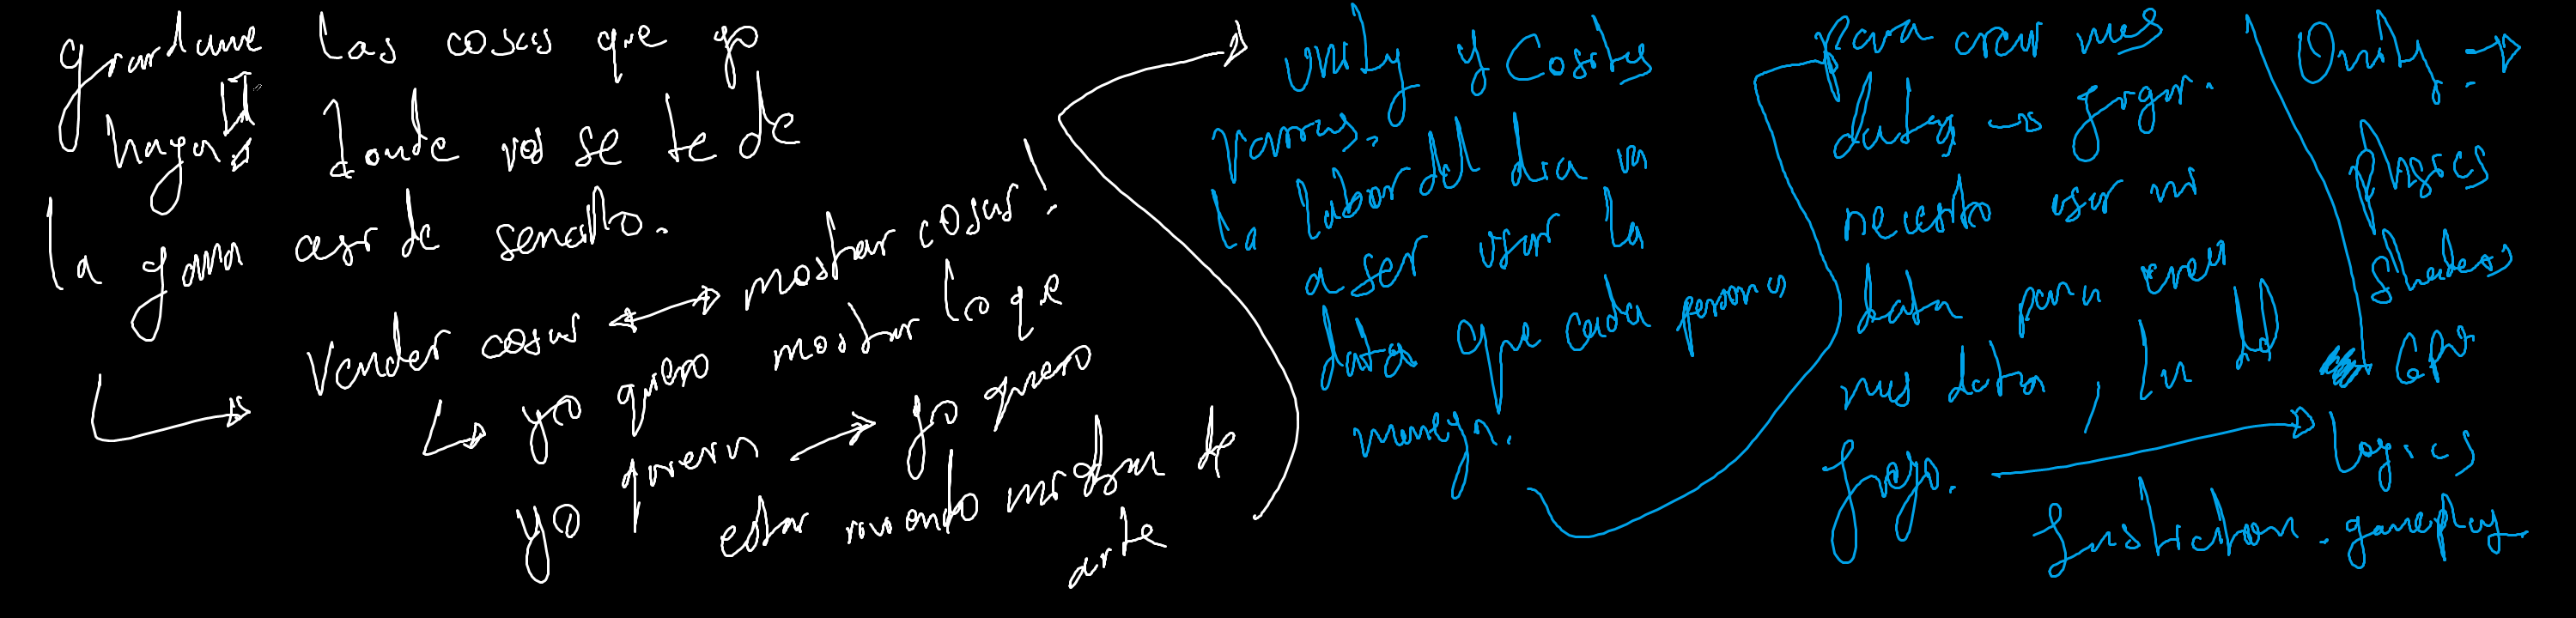 las cosas que yo
haga, donde vos se te de
la gana asi de sencillo.
Vender cosas ↔ mostrar cosas!
↳ yo quiero mostrar lo que
yo quiera → yo quiero
estar moviendo de
arte
unity y Cositas
varias.
la labor del dia va
a ser usar la
data que cada persona
maneja.
para crear mas
data → jugar.
necesito usar mi
data para crear
mas data, en el
juego.
Unity →
physics
shaders
GPU
logics
gameplay